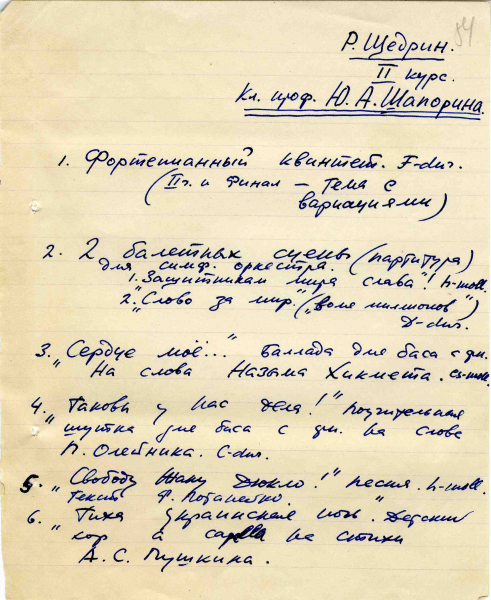 84
Р. Щедрин.
II курс.
Кл. проф. Ю. А. Шапорина.
1. Фортепианный квинтет. F-dur.
(II ч. и финал – тема с
вариациями)
2. 2 балетных сцены (партитура)
для симф. оркестра.
1. „Защитникам мира слава"! h-moll.
2. „Слово за мир." („воля миллионов")
D-dur.
3. „Сердце моё..." баллада для баса с ф.
На слова Назыма Хикмета. cs-moll.
4. „Таковы у нас дела!" поучительная
шутка для баса с ф. на слова
П. Олейника. C-dur.
5. „Свободу Жаку Дюкло!" песня. h-moll.
Текст
6. „Тиха украинская ночь". Детский
хор a capella на стихи
А. С. Пушкина.